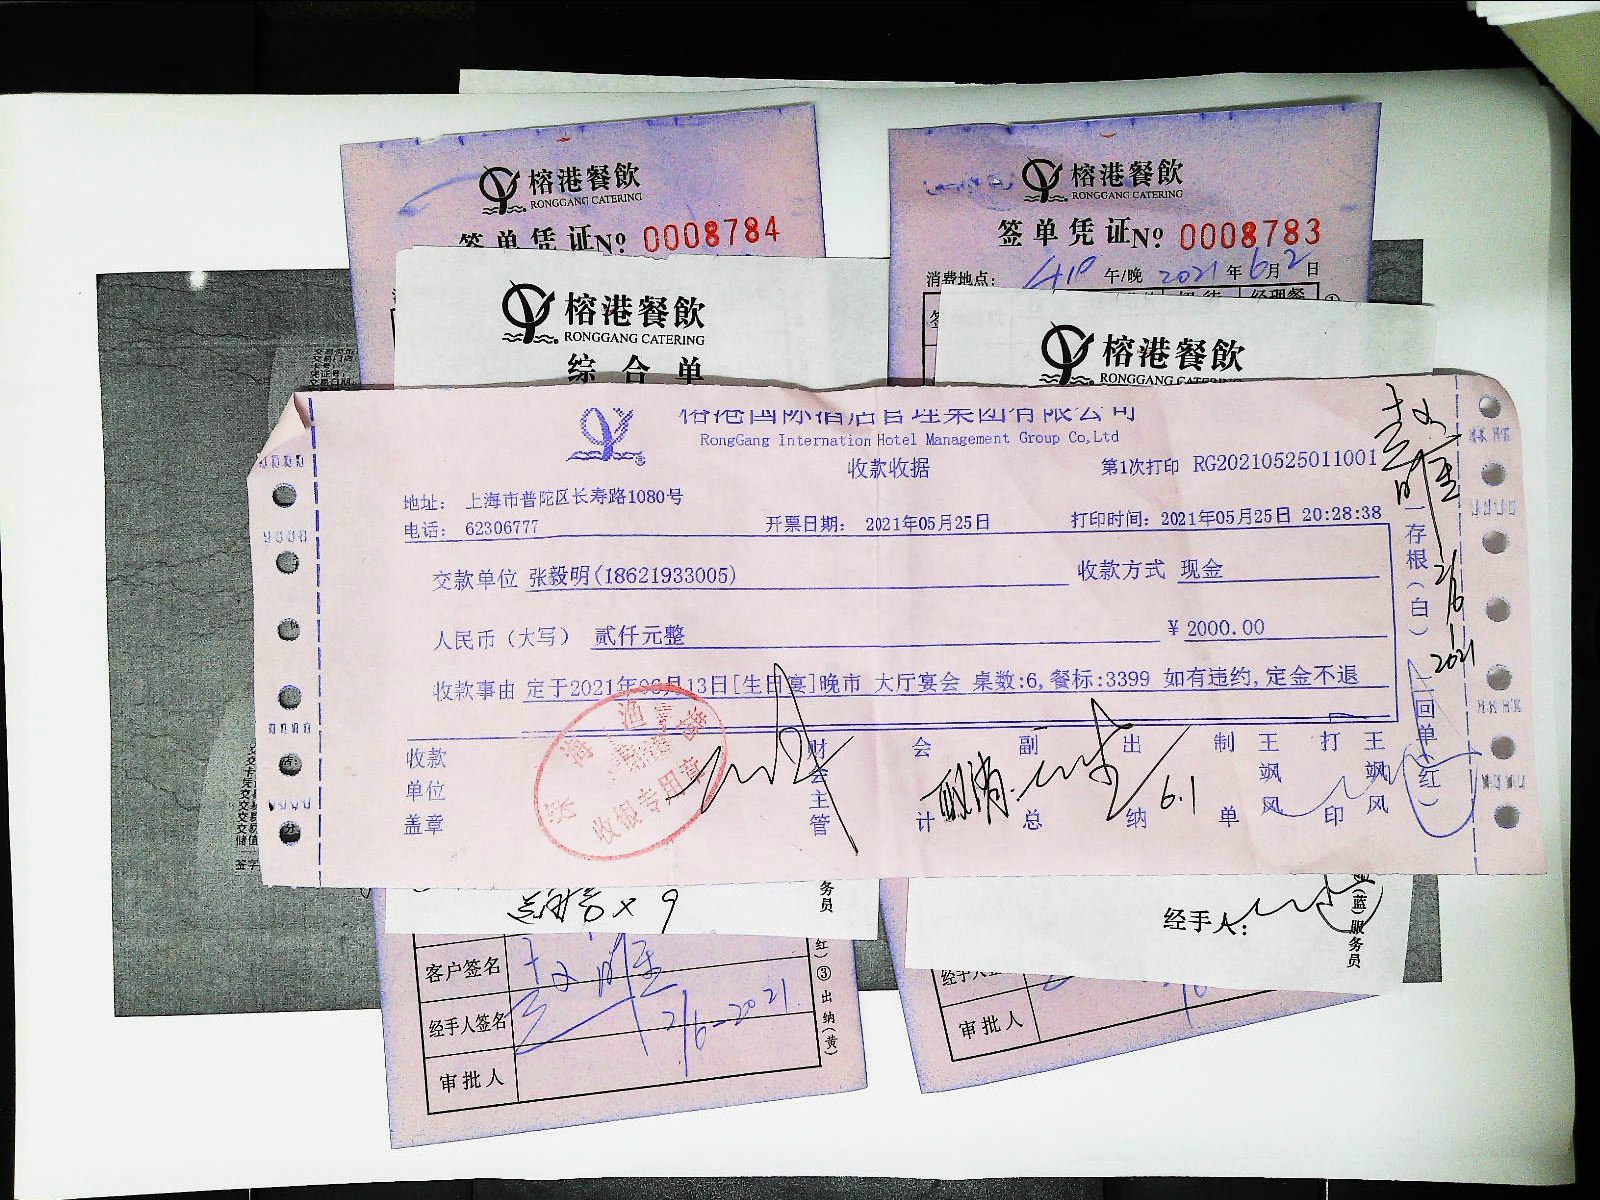 榕港餐飲
RONGGANG CATERING
签单凭证№ 0008784
榕港餐飲
RONGGANG CATERING
签单凭证№ 0008783
消费地点： 午/晚 2021年6月2日
榕港餐飲
RONGGANG CATERING
综合单
榕港餐飲
RONGGANG CATERING
榕港国际酒店管理集团有限公司
RongGang Internation Hotel Management Group Co,Ltd
收款收据
第1次打印 RG20210525011001
地址： 上海市普陀区长寿路1080号
电话： 62306777
开票日期： 2021年05月25日
打印时间：2021年05月25日 20:28:38
交款单位 张毅明(18621933005)
收款方式 现金
人民币（大写） 贰仟元整
¥ 2000.00
收款事由 定于2021年06月13日[生日宴]晚市 大厅宴会 桌数:6,餐标:3399 如有违约,定金不退
收款单位盖章
财会主管
会计
副总
出纳
制单
王飒风
打印
王飒风
一存根（白）
二回单（红）
2/6
2021
收银专用章
取消
6.1
x 9
务员
经手人：
(蓝)服务员
客户签名
经手人签名
2/6-2021.
审批人
红）③出纳（黄）
审批人